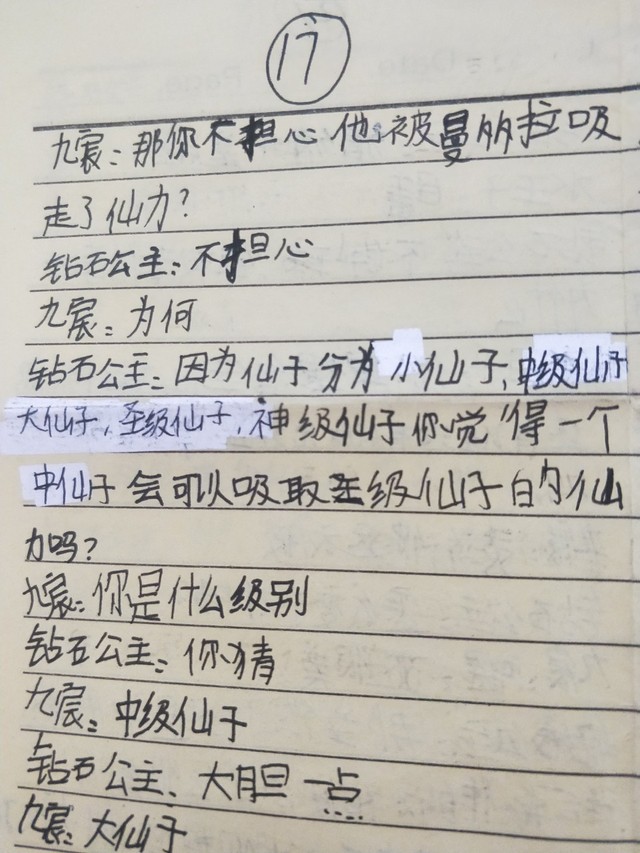 17
九宸：那你不担心他被曼多拉吸
走了仙力？
钻石公主：不担心
九宸：为何
钻石公主：因为仙子分为小仙子，中级仙子
大仙子，圣级仙子，神级仙子你觉得一个
中仙子会可以吸取圣级仙子的仙
力吗？
九宸：你是什么级别
钻石公主：你猜
九宸：中级仙子
钻石公主：大胆一点
九宸：大仙子